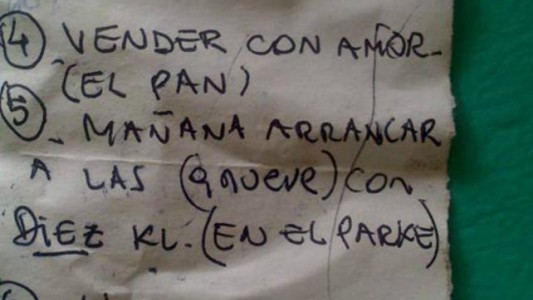 4 VENDER CON AMOR-
(EL PAN)
5 - MAÑANA ARRANCAR
A LAS (9 nueve) CON
DiEZ KL. (EN EL PARKE)